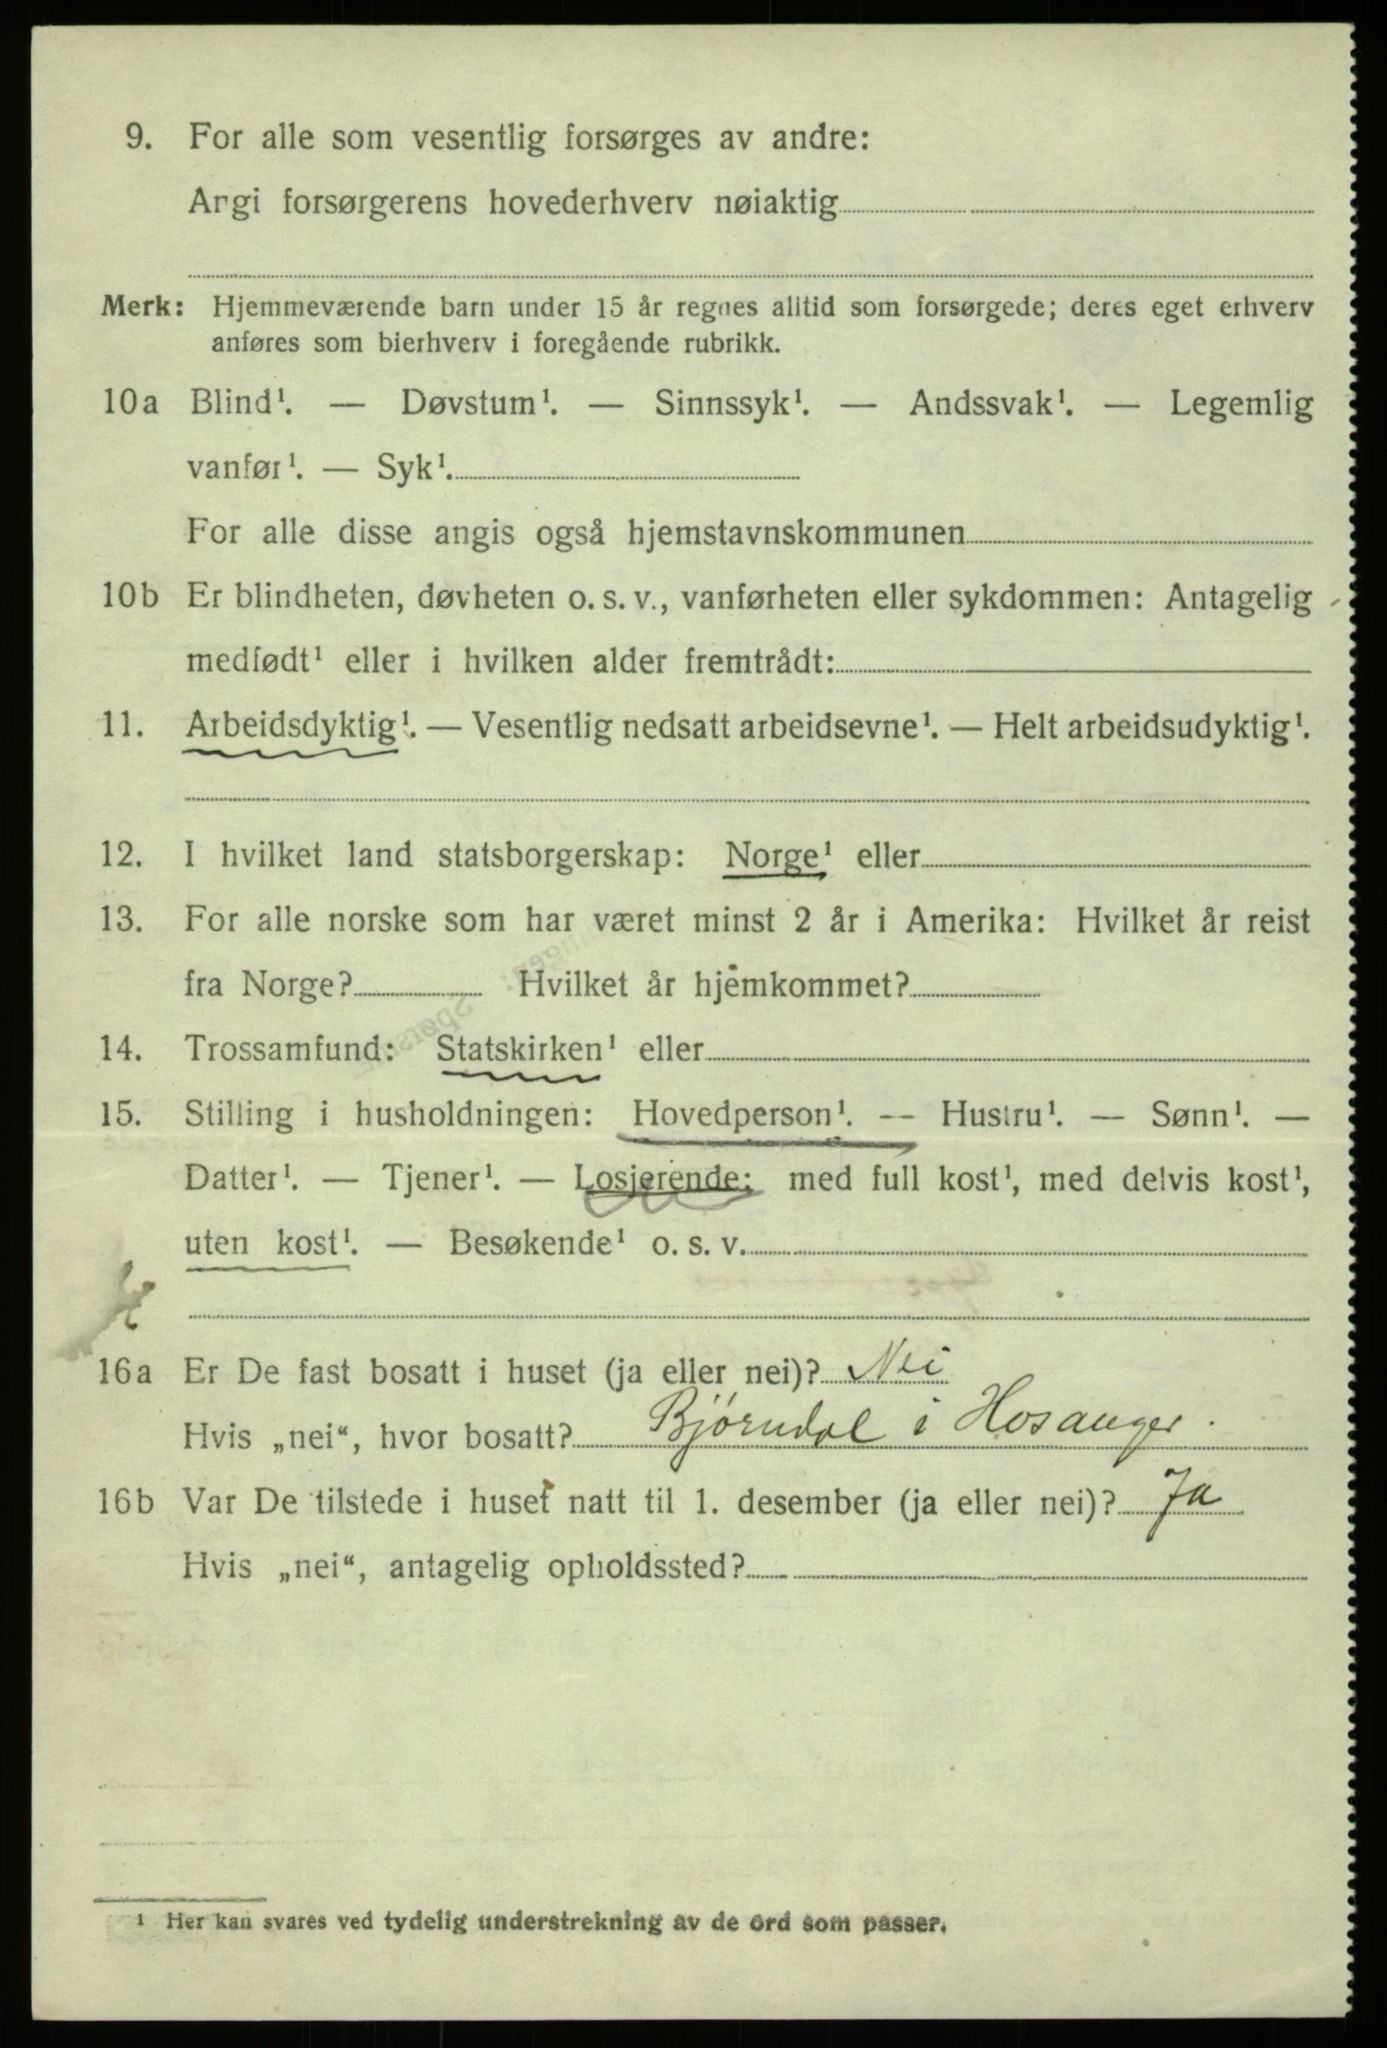 9. For alle som vesentlig forsørges av andre:
Angi forsørgerens hovederhverv nøiaktig
Merk: Hjemmeværende barn under 15 år regnes alltid som forsørgede; deres eget erhverv
anføres som bierhverv i foregående rubrikk.
10a Blind¹. — Døvstum¹. — Sinnssyk¹. — Andssvak¹. — Legemlig
vanfør¹. — Syk¹.
For alle disse angis også hjemstavnskommunen
10b Er blindheten, døvheten o. s. v., vanførheten eller sykdommen: Antagelig
medfødt¹ eller i hvilken alder fremtrådt:
11. Arbeidsdyktig¹. — Vesentlig nedsatt arbeidsevne¹. — Helt arbeidsudyktig¹.
12. I hvilket land statsborgerskap: Norge¹ eller
13. For alle norske som har været minst 2 år i Amerika: Hvilket år reist
fra Norge? Hvilket år hjemkommet?
14. Trossamfund: Statskirken¹ eller
15. Stilling i husholdningen: Hovedperson¹. — Hustru¹. — Sønn¹. —
Datter¹. — Tjener¹. — Losjerende: med full kost¹, med delvis kost¹,
uten kost¹. — Besøkende¹ o. s. v.
16a Er De fast bosatt i huset (ja eller nei)? Nei
Hvis „nei“, hvor bosatt? Bjørndal i Hosanger.
16b Var De tilstede i huset natt til 1. desember (ja eller nei)? Ja
Hvis „nei“, antagelig opholdssted?
¹ Her kan svares ved tydelig understrekning av de ord som passer.